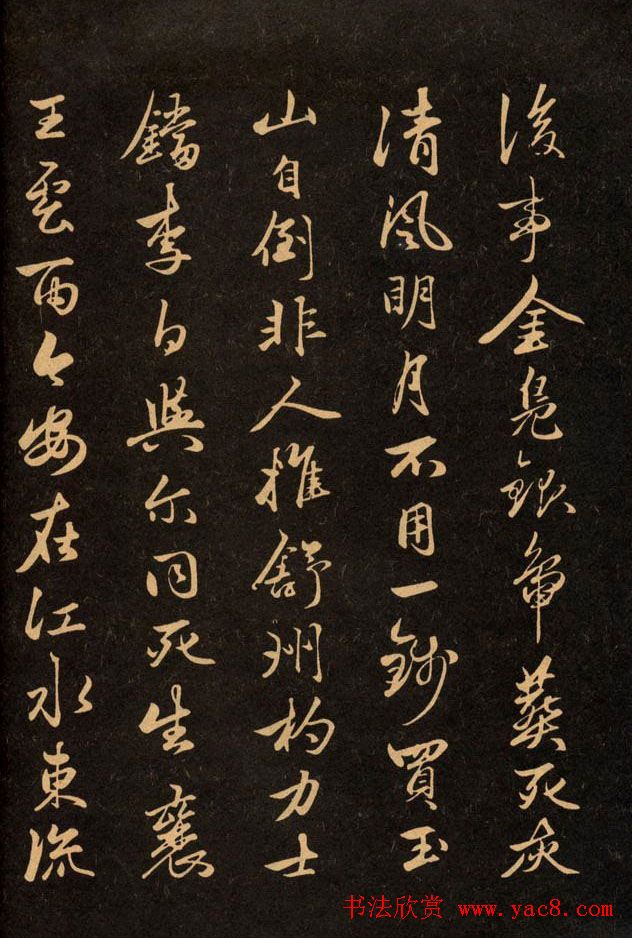 後事金鳧銀葬死灰
清風明月不用一錢買玉
山自倒非人推舒州杓力士
鐺李白與尔同死生襄
王雲雨今安在江水東流
书法欣赏 www.yac8.com